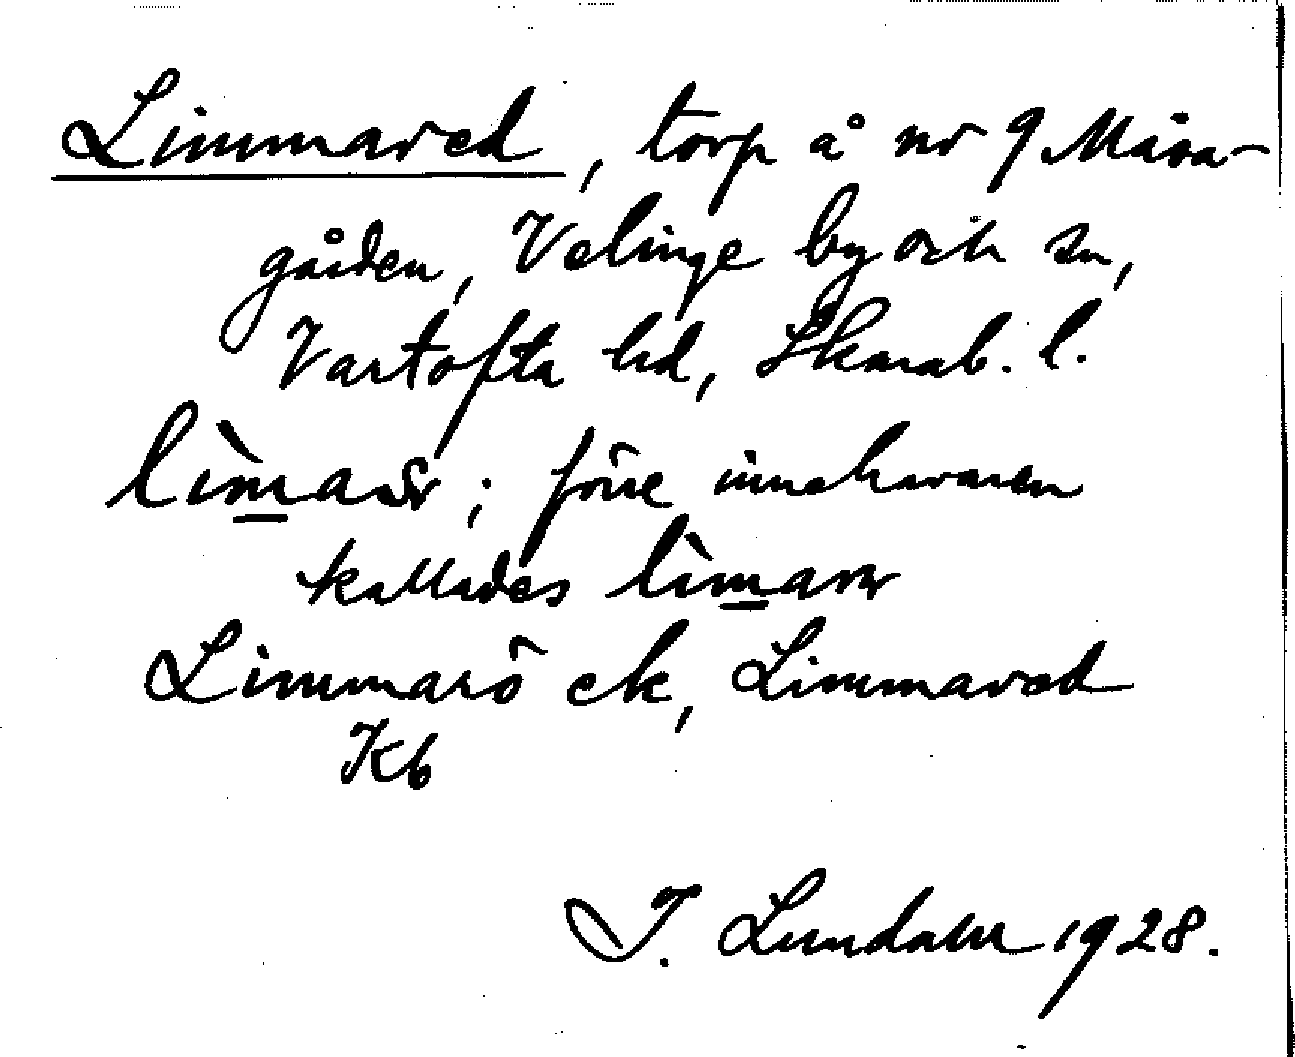 Limmared, torp å nr 9 Måsa-
gården, Velinge by och sn,
Vartofta hd, Skarab. l.
; förre innehavaren
kallades
Limmarö ek, Limmared
Kb
I. Lundahl 1928.